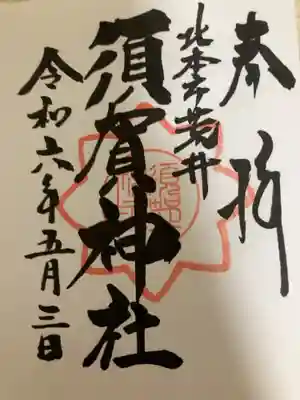 奉拝
北本市荒井
須賀神社
令和六年五月三日